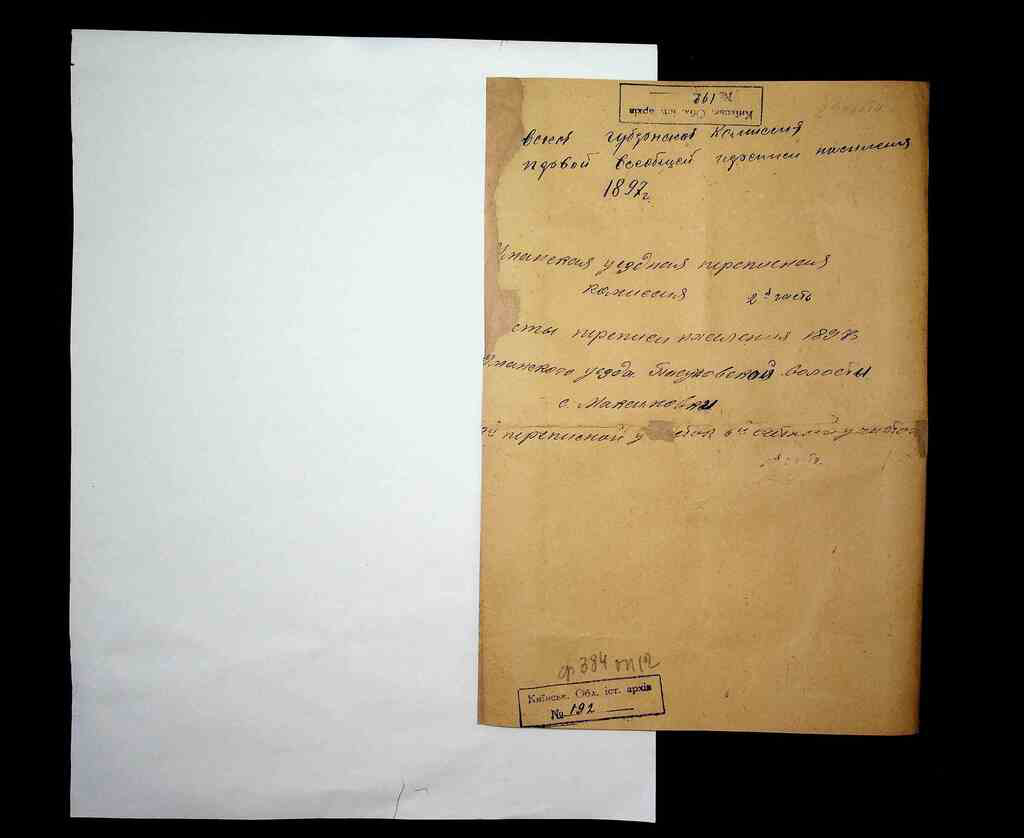 Київськ. Обл. іст. архів
№ 192
вской губернской Комиссия
первой всеобщей переписи населения
1897г.
Уманская уездная переписная
комиссия 2я часть
сты переписи населения 1897г
Уманского уезда волости
с. Максимовки
ой переписной у 6й счетный участок
ф 384 оп 12
Київськ. Обл. іст. архів
№ 192